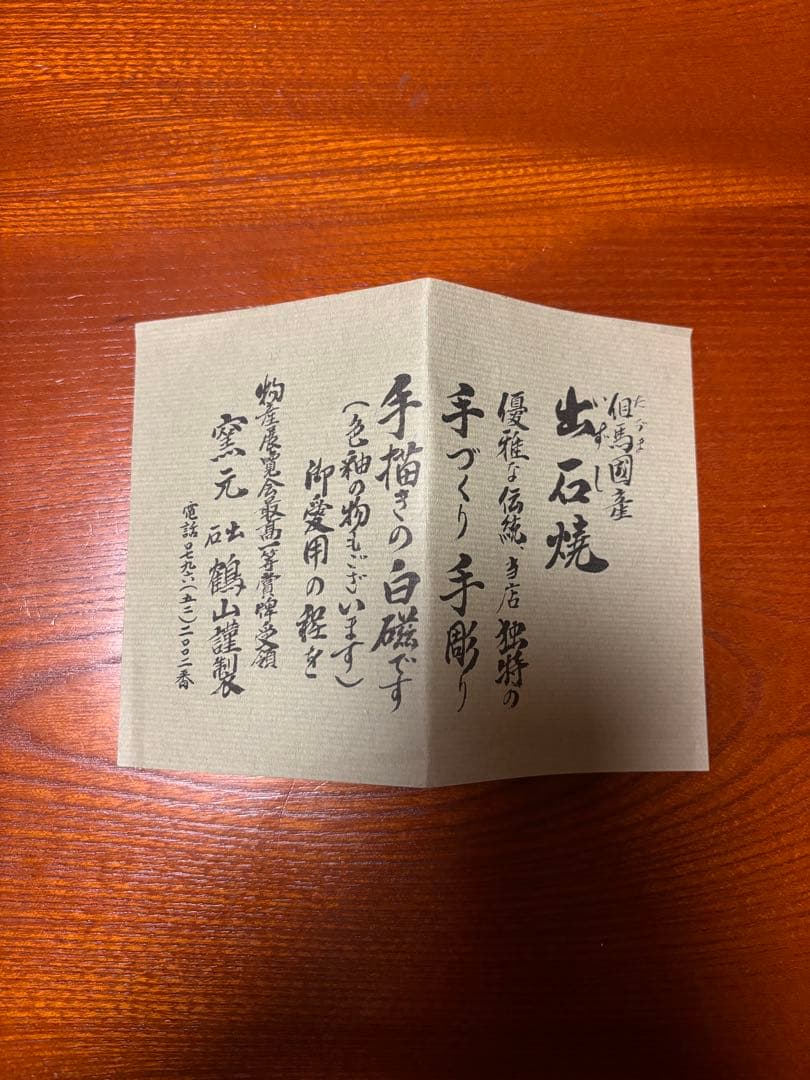 たじま
但馬國産
いずし
出石焼
優雅な伝統、当店独特の
手づくり手彫り
手描きの白磁です
(色釉の物もございます)
御愛用の程を
物産展覧会最高一等賞牌受領
窯元 鶴山謹製
電話〇七九六(五二)二〇〇二番